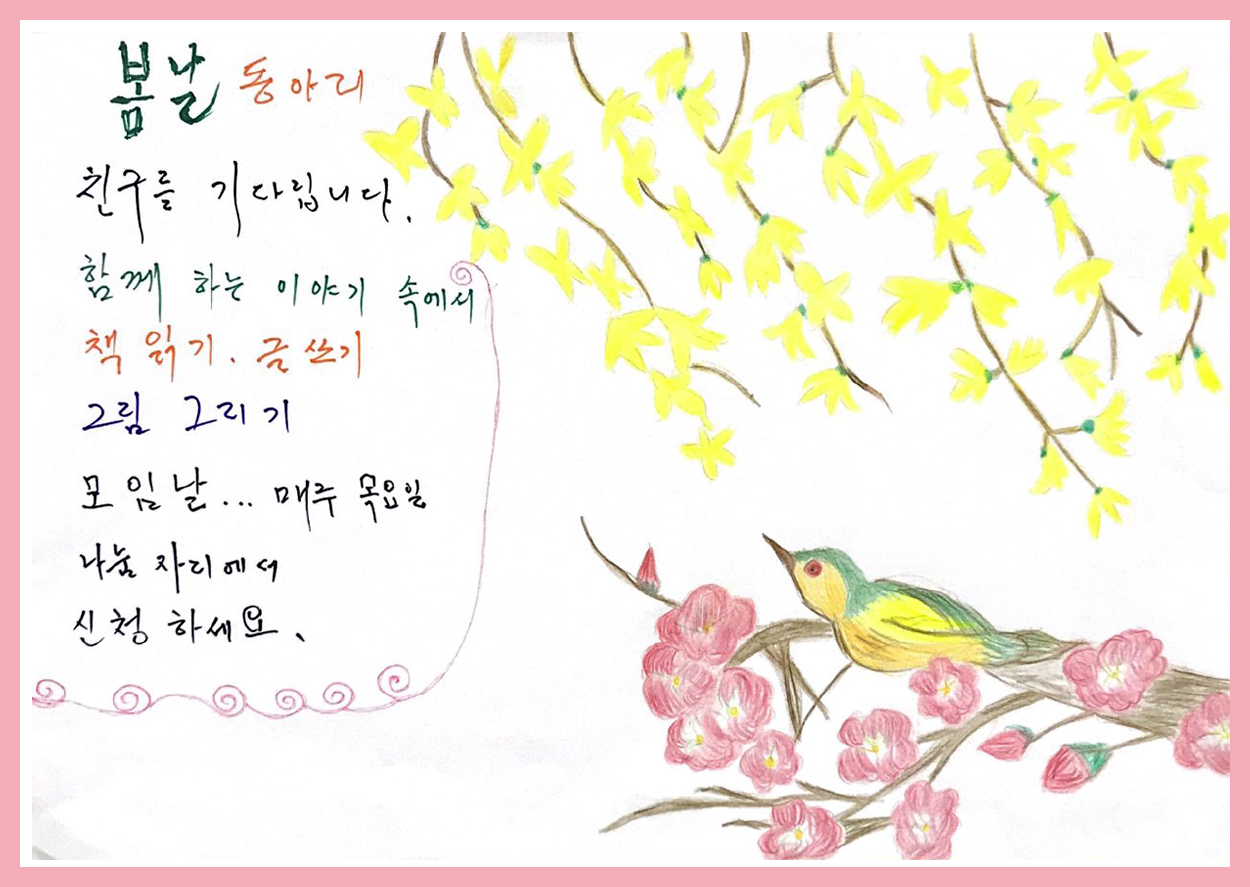 봄날 동아리
친구를 기다립니다.
함께 하는 이야기 속에서
책 읽기. 글쓰기
그림 그리기
모임날... 매주 목요일
나눔 자리에서
신청 하세요.